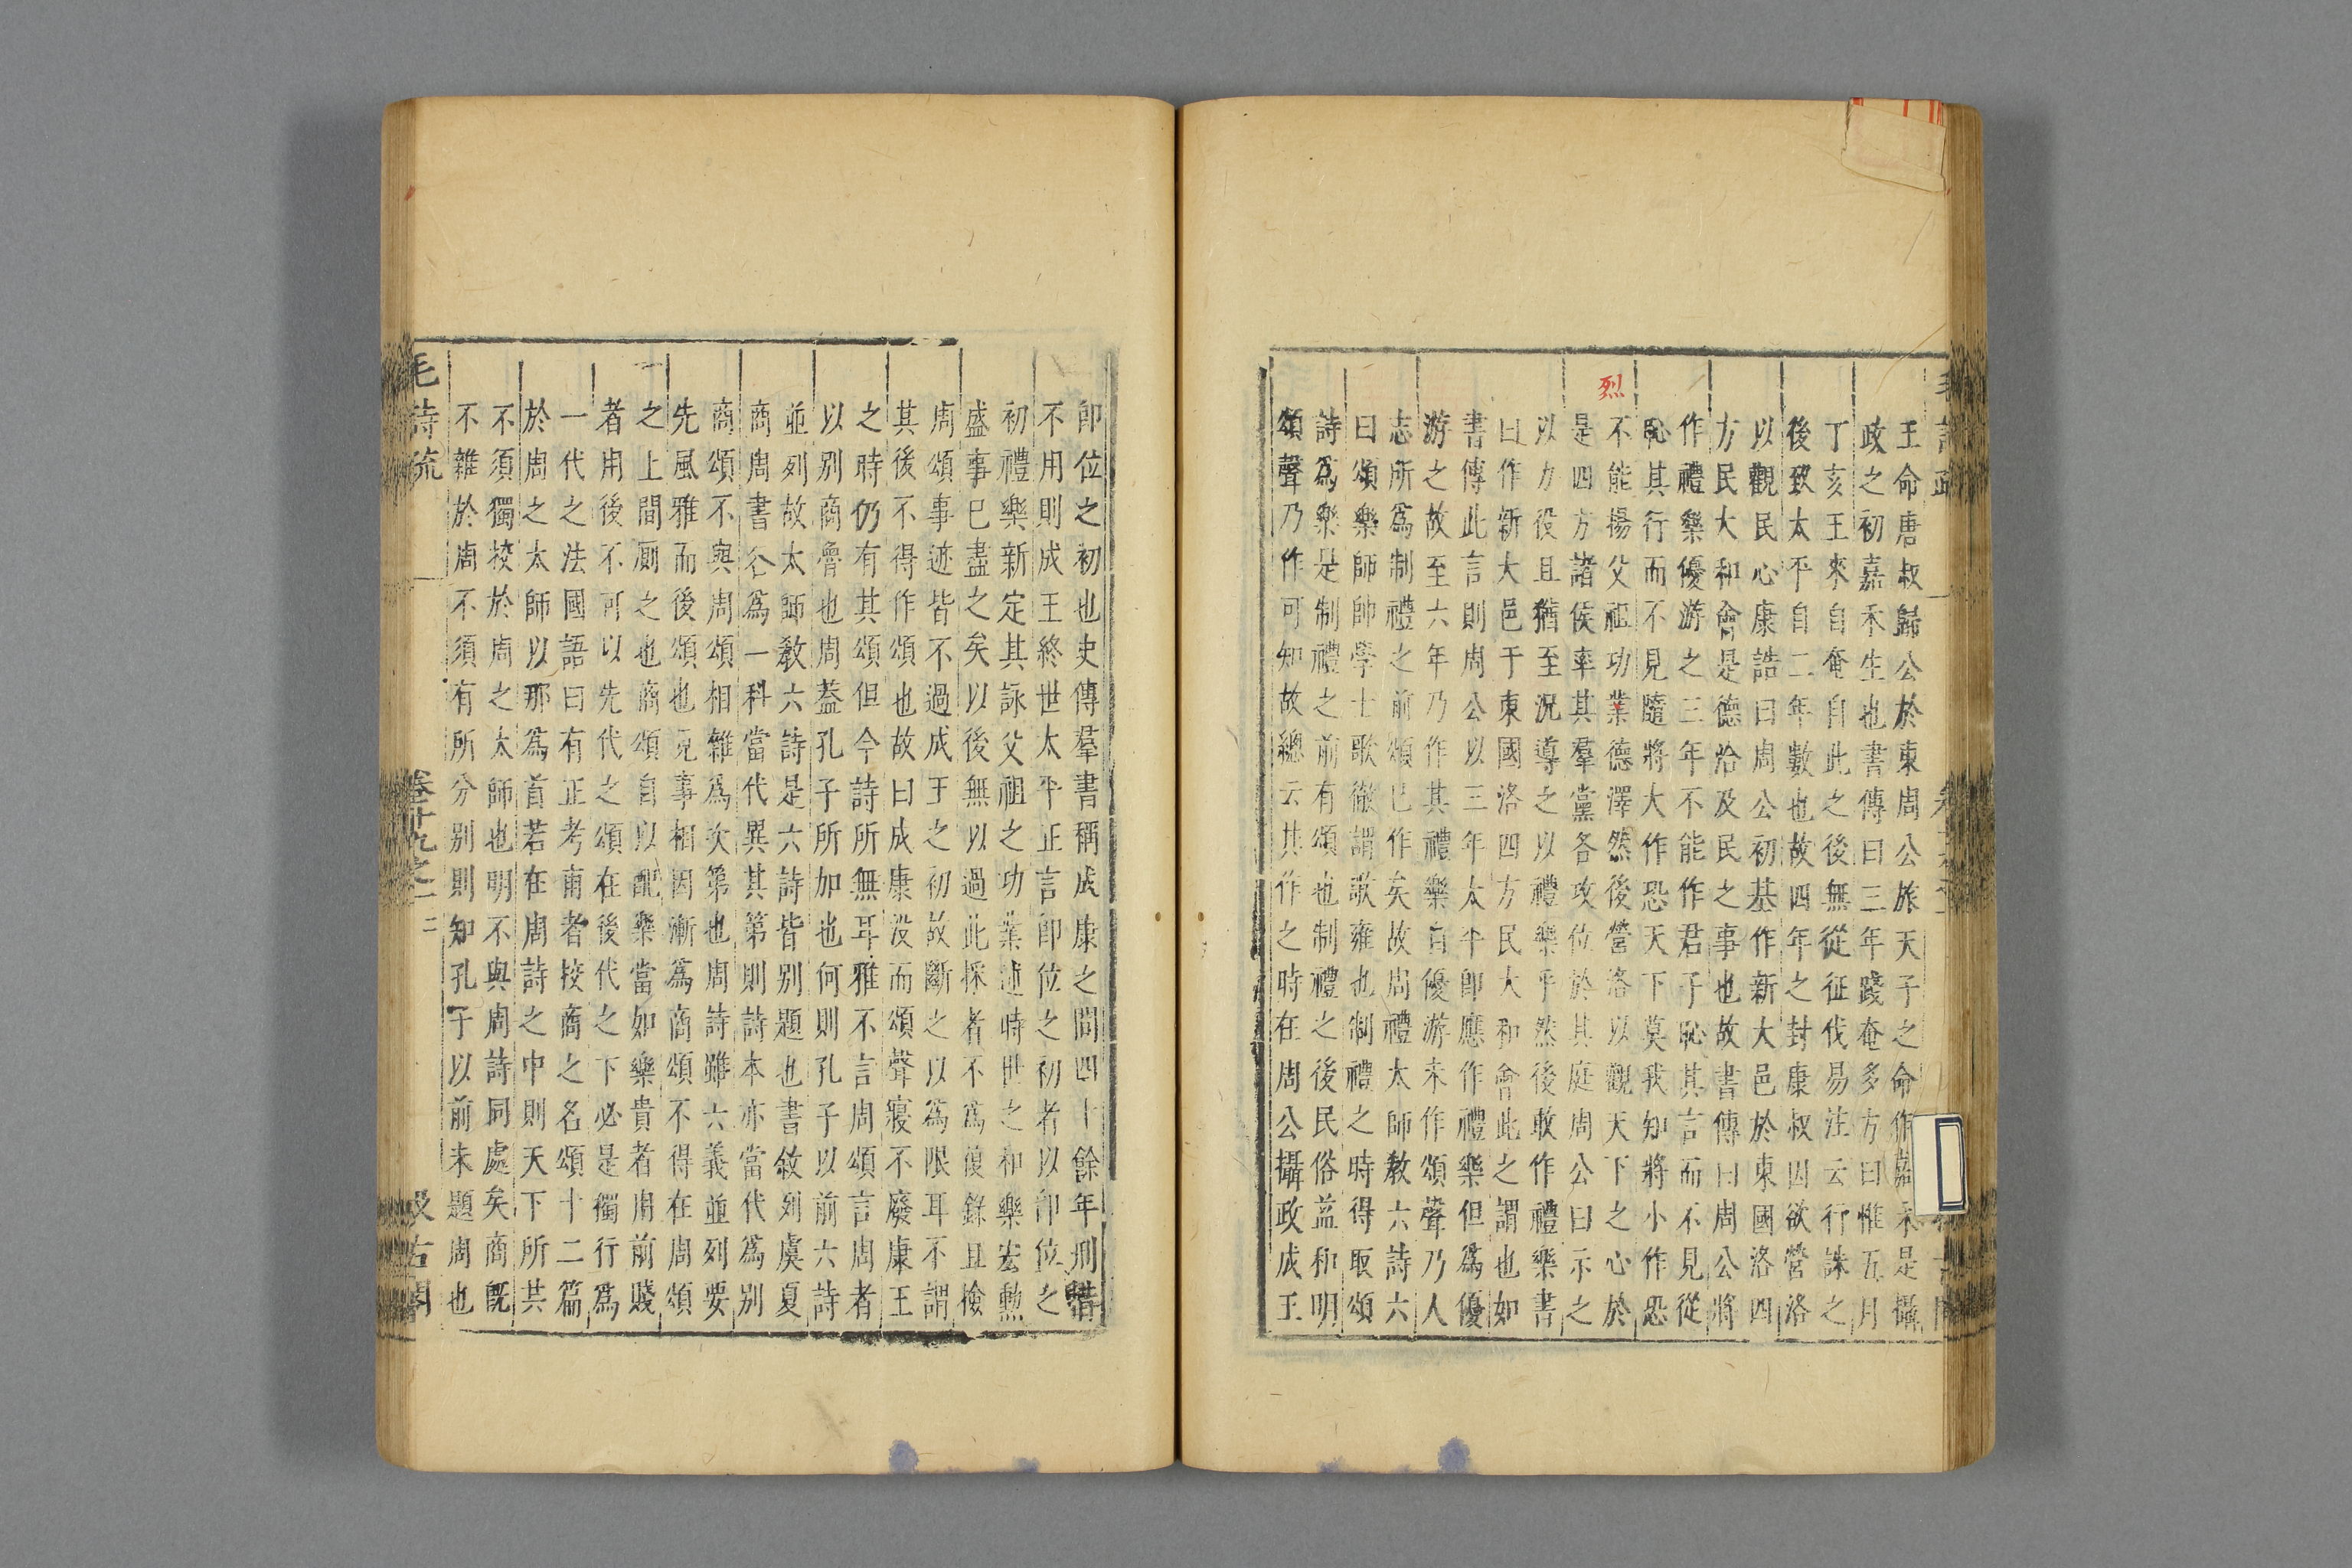 王命唐叔歸公於東周公旅天子之命作嘉禾是攝
政之初嘉禾生也書傳曰三年踐奄多方曰惟五月
丁亥王來自奄自此之後無從征伐易注云行誅之
後致太平自二年數也故四年之封康叔因欲營洛
以觀民心康誥曰周公初基作新大邑於東國洛四
方民大和會是德洽及民之事也故書傳曰周公將
作禮樂優游之三年不能作君子恥其言而不見從
恥其行而不見隨將大作恐天下莫我知將小作恐
不能揚父祖功業德澤然後營洛以觀天下之心於
烈
是四方諸侯率其羣黨各攻位於其庭周公曰示之
以力役且猶至況導之以禮樂乎然後敢作禮樂書
曰作新大邑于東國洛四方民大和會此之謂也如
書傳此言則周公以三年太平卽應作禮樂但爲優
游之故至六年乃作其禮樂自優游未作頌聲乃人
志所爲制禮之前頌已作矣故周禮太師敎六詩六
曰頌樂師帥學士歌徹謂歌雍也制禮之時得取頌
詩爲樂是制禮之前有頌也制禮之後民俗益和明
頌聲乃作可知故總云其作之時在周公攝政成王
卽位之初也史傳羣書稱成康之間四十餘年刑措
不用則成王終世太平正言卽位之初者以卽位之
初禮樂新定其詠父祖之功業述時世之和樂宏勲
盛事已盡之矣以後無以過此採者不爲復錄且檢
周頌事迹皆不過成王之初故斷之以爲限耳不謂
其後不得作頌也故曰成康沒而頌聲寢不廢康王
之時仍有其頌但今詩所無耳雅不言周頌言周者
以别商魯也周蓋孔子所加也何則孔子以前六詩
並列故太師敎六詩是六詩皆别題也書敘列虞夏
商周書各爲一科當代異其第則詩本亦當代爲别
商頌不與周頌相雜爲次第也周詩雖六義並列要
先風雅而後頌也見事相因漸爲商頌不得在周頌
之上間廁之也商頌自以配樂當如樂貴者用前賤
者用後不可以先代之頌在後代之下必是獨行爲
一代之法國語曰有正考甫者校商之名頌十二篇
於周之太師以那爲首若在周詩之中則天下所共
不須獨校於周之太師也明不與周詩同處矣商旣
不雜於周不須有所分别則知孔子以前未題周也
毛詩疏　卷十九之一　二　汲古閣